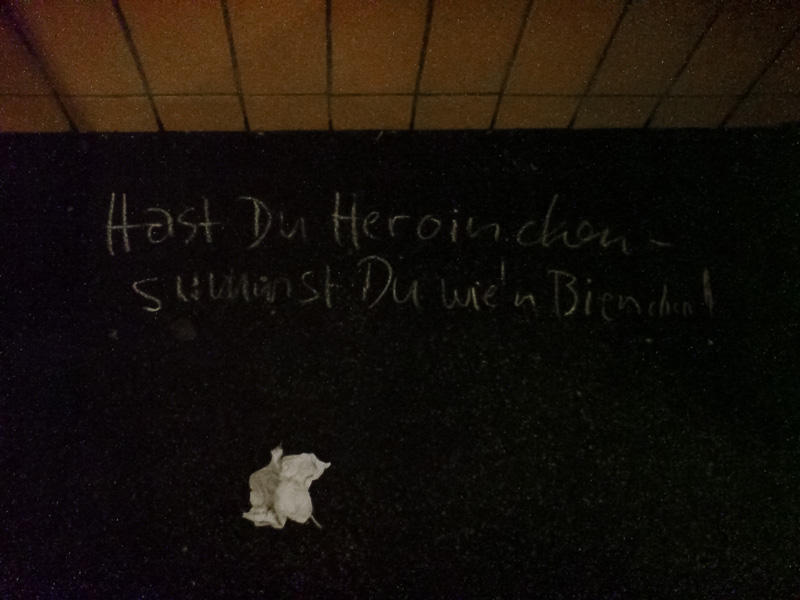 Hast Du Heroinchen -
summst Du wie'n Bienchen!